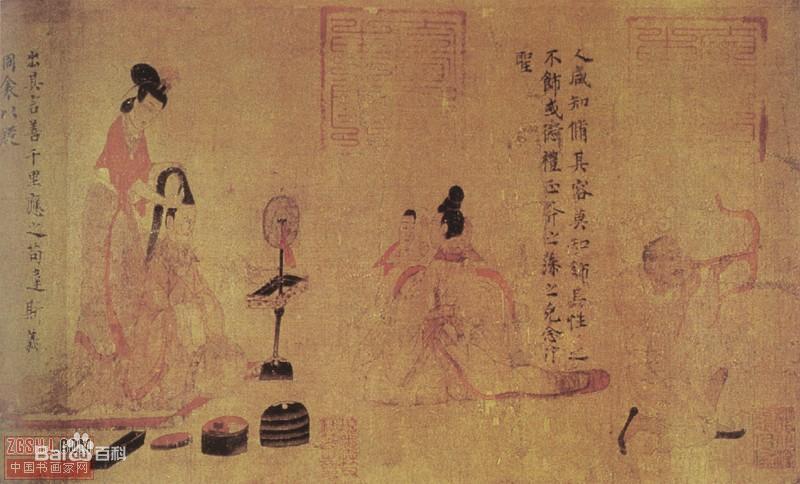 人咸知脩其容莫知飾其性之
不飾或愆禮正斧之藻之克念作
聖
出其言善千里應之苟違斯義
同衾以疑
Baidu百科
中国书画家网